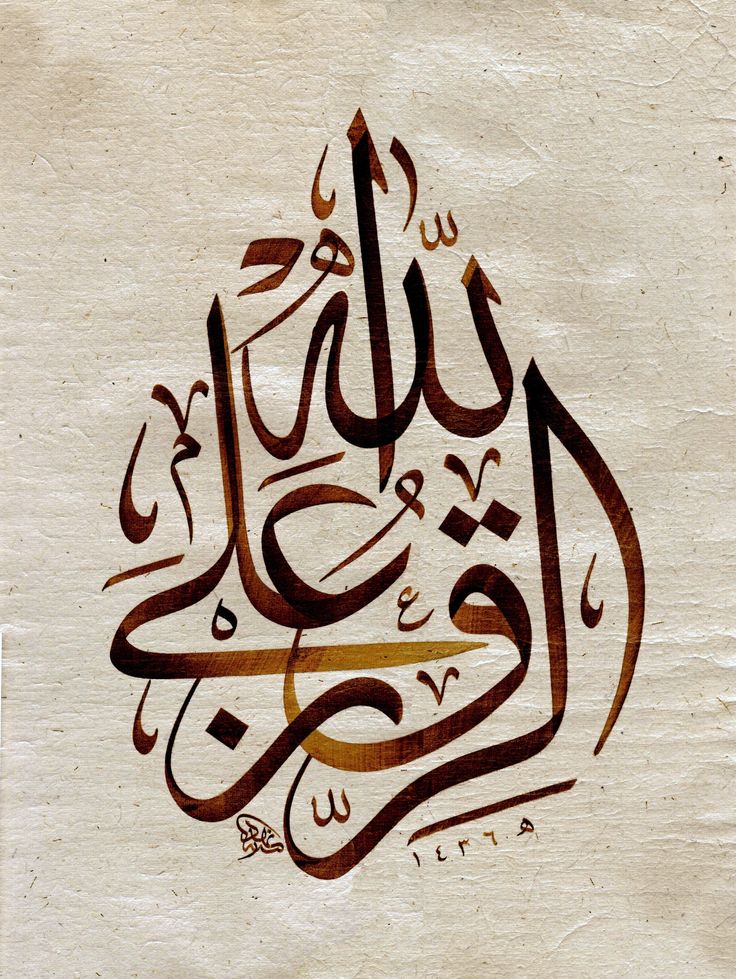 الرِّزْقُ عَلَى اللّٰهِ
١٤٣٦ هـ